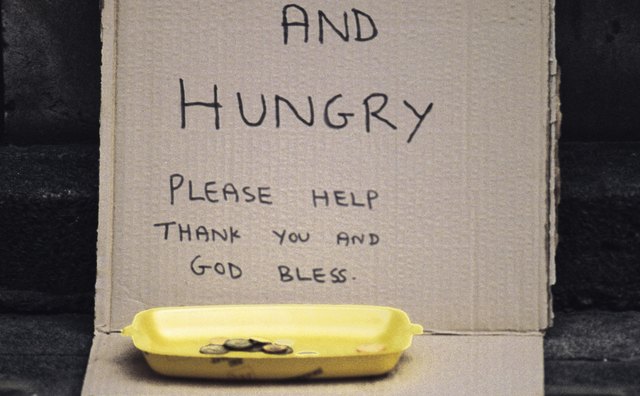 AND
HUNGRY
PLEASE HELP
THANK YOU AND
GOD BLESS.